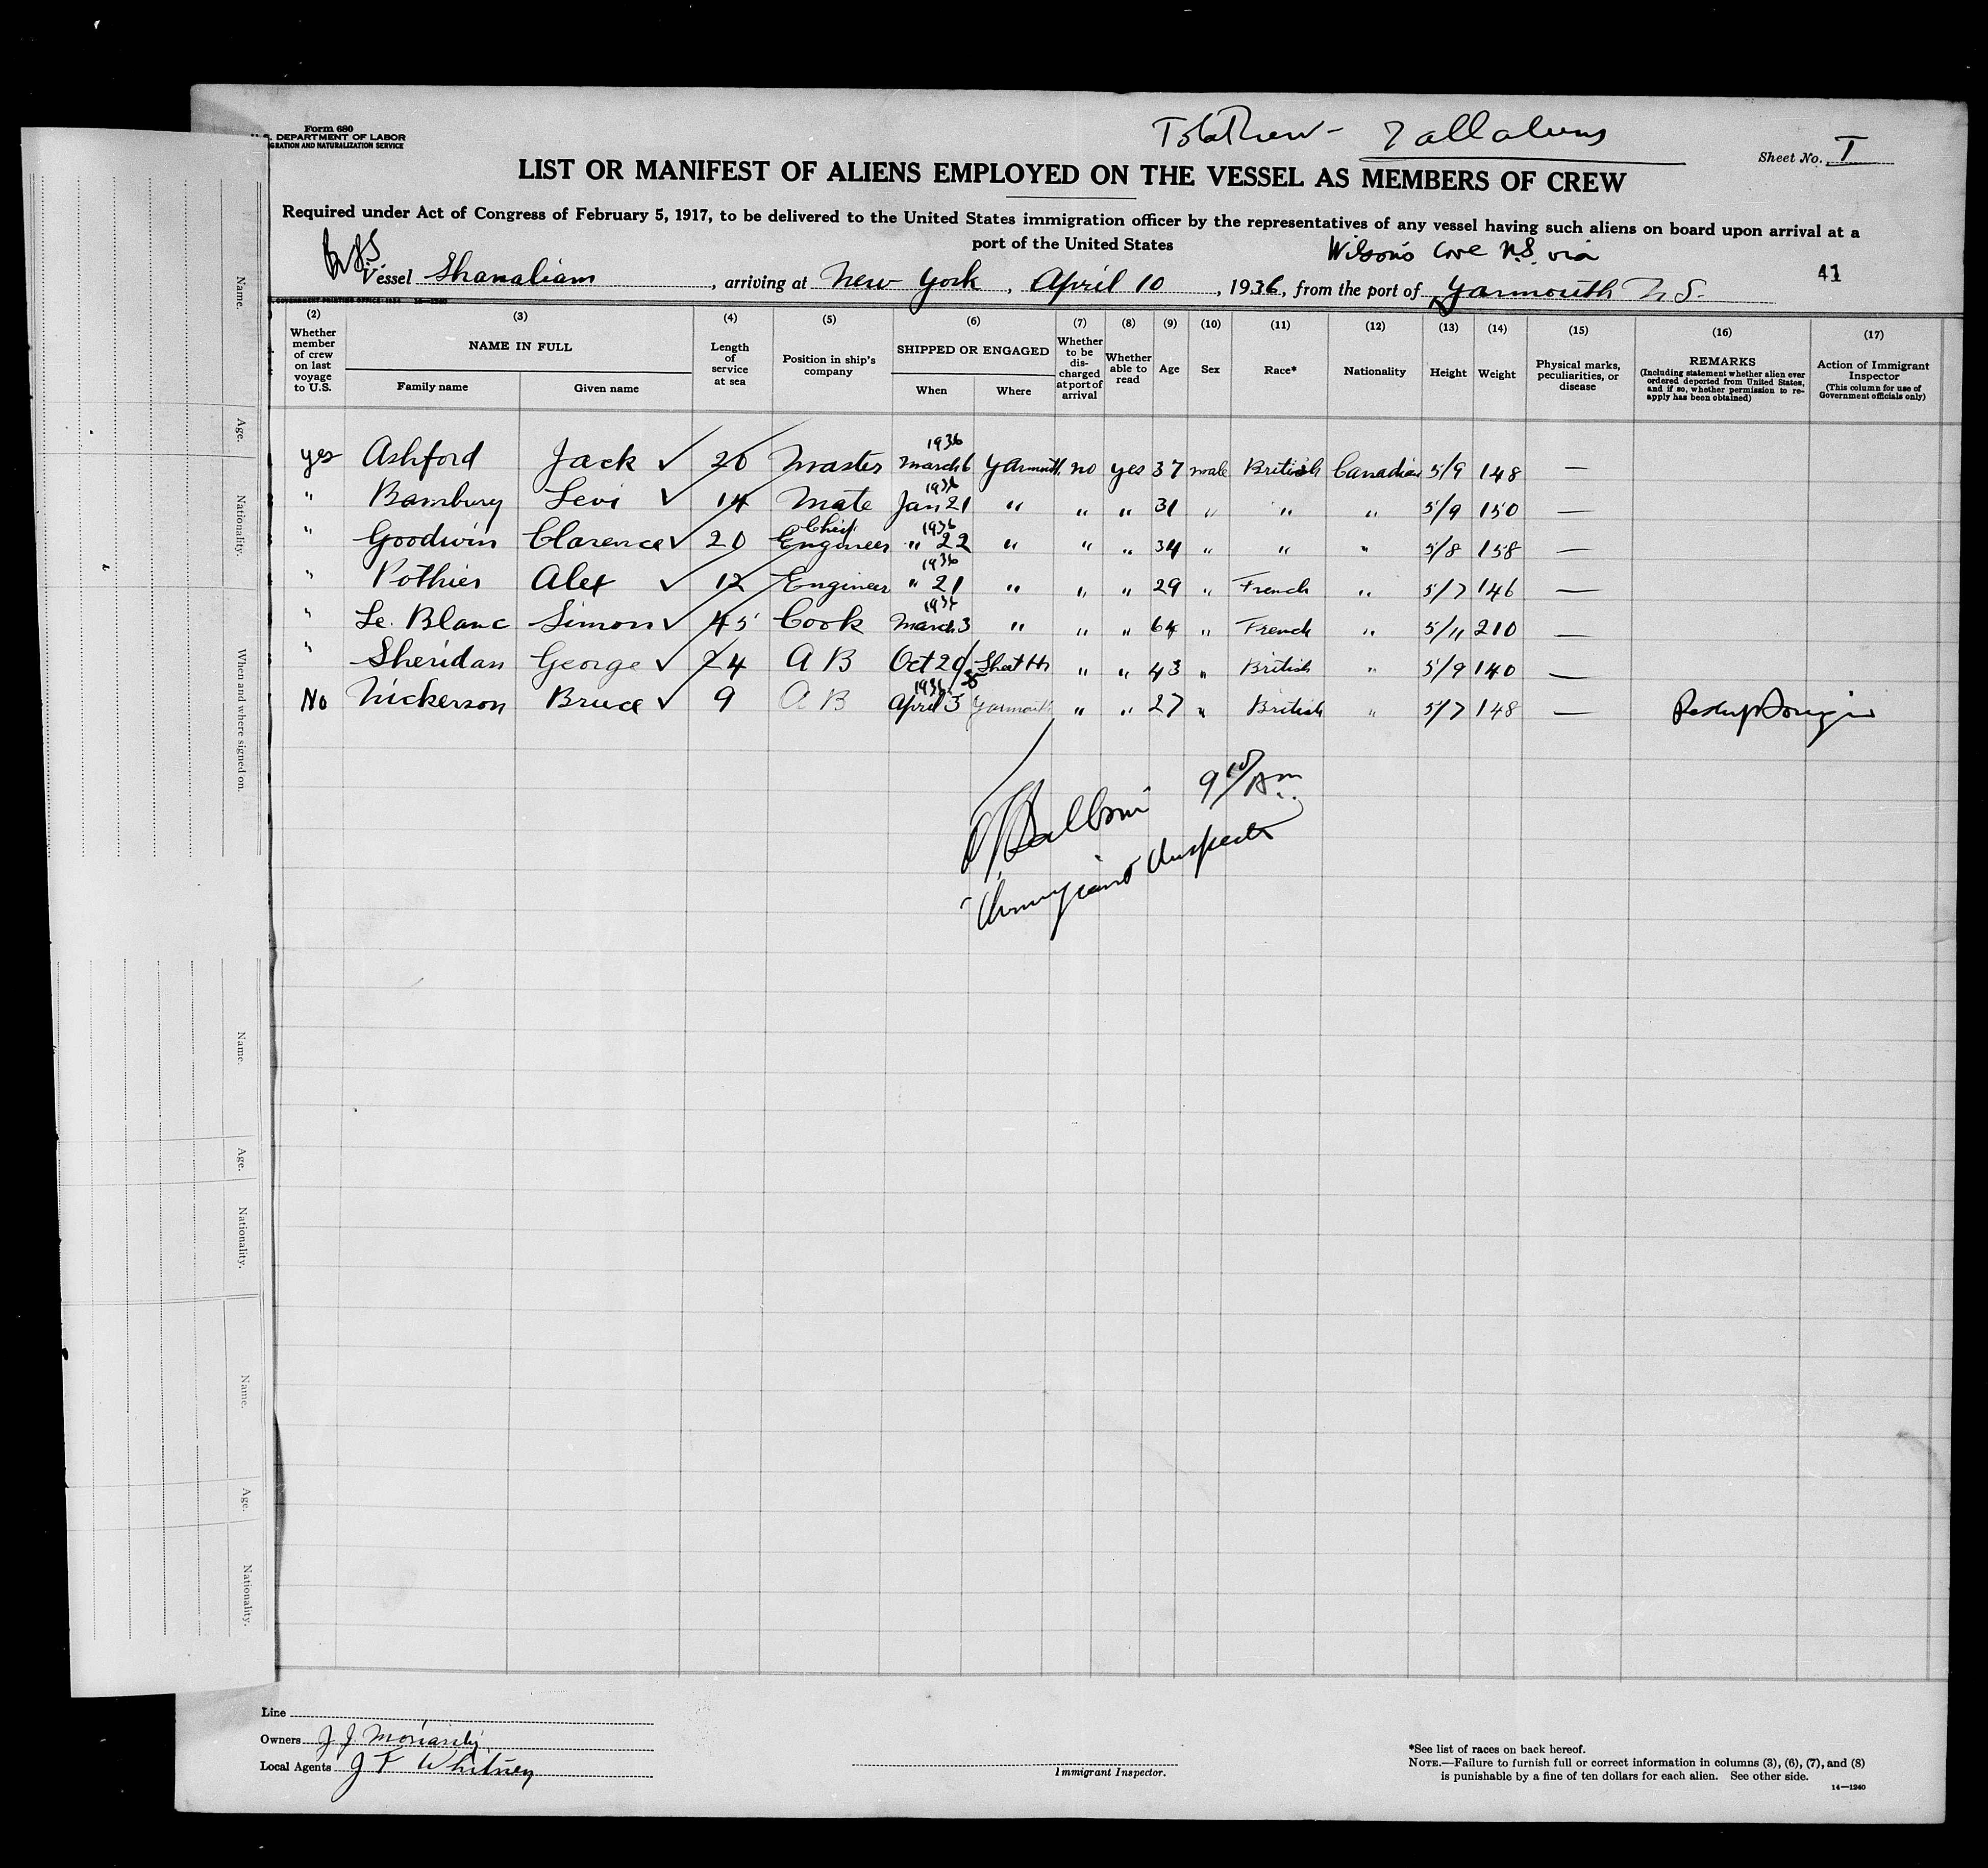 Form 680
U. S. DEPARTMENT OF LABOR
IMMIGRATION AND NATURALIZATION SERVICE
Total Crew - 7 all aliens
Sheet No. I
LIST OR MANIFEST OF ALIENS EMPLOYED ON THE VESSEL AS MEMBERS OF CREW
Required under Act of Congress of February 5, 1917, to be delivered to the United States immigration officer by the representatives of any vessel having such aliens on board upon arrival at a
port of the United States
Wilson's Cove N.S. via
Vessel Shanalian, arriving at New York, April 10, 1936, from the port of Yarmouth N.S.
41
(2) (3) (4) (5) (6) (7) (8) (9) (10) (11) (12) (13) (14) (15) (16) (17)
Whether member of crew on last voyage to U.S.
NAME IN FULL
Family name
Given name
Length of service at sea
Position in ship's company
SHIPPED OR ENGAGED
When
Where
Whether to be discharged at port of arrival
Whether able to read
Age
Sex
Race*
Nationality
Height
Weight
Physical marks, peculiarities, or disease
REMARKS
(Including statement whether alien ever ordered deported from United States, and if so, whether permission to reapply has been obtained)
Action of Immigrant Inspector
(This column for use of Government officials only)
yes Ashford Jack ✓ 20 Master 1936 March 6 Yarmouth no yes 37 male British Canadian 5/9 148 —
" Bambury Levi ✓ 14 Mate 1936 Jan 21 " " " 31 " " " 5/9 150 —
" Goodwin Clarence ✓ 20 Chief Engineer 1936 " 22 " " " 34 " " " 5/8 158 —
" Pothier Alex ✓ 12 Engineer 1936 " 21 " " " 29 " French " 5/7 146 —
" Le Blanc Simon ✓ 45 Cook 1936 March 3 " " " 64 " French " 5/11 210 —
" Sheridan George ✓ 24 A B Oct 20/35 Sheet Hr " " 43 " British " 5/9 140 —
No Nickerson Bruce ✓ 9 A B 1936 April 3 Yarmouth " " 27 " British " 5/7 148 —
9 Am
Immigrant Inspector
Name.
Age.
Nationality.
When and where signed on.
Name.
Age.
Nationality.
Name.
Age.
Nationality.
Line
Owners J. J. Moriarity
Local Agents J F Whitney
Immigrant Inspector.
*See list of races on back hereof.
NOTE.—Failure to furnish full or correct information in columns (3), (6), (7), and (8)
is punishable by a fine of ten dollars for each alien. See other side.
14—1240